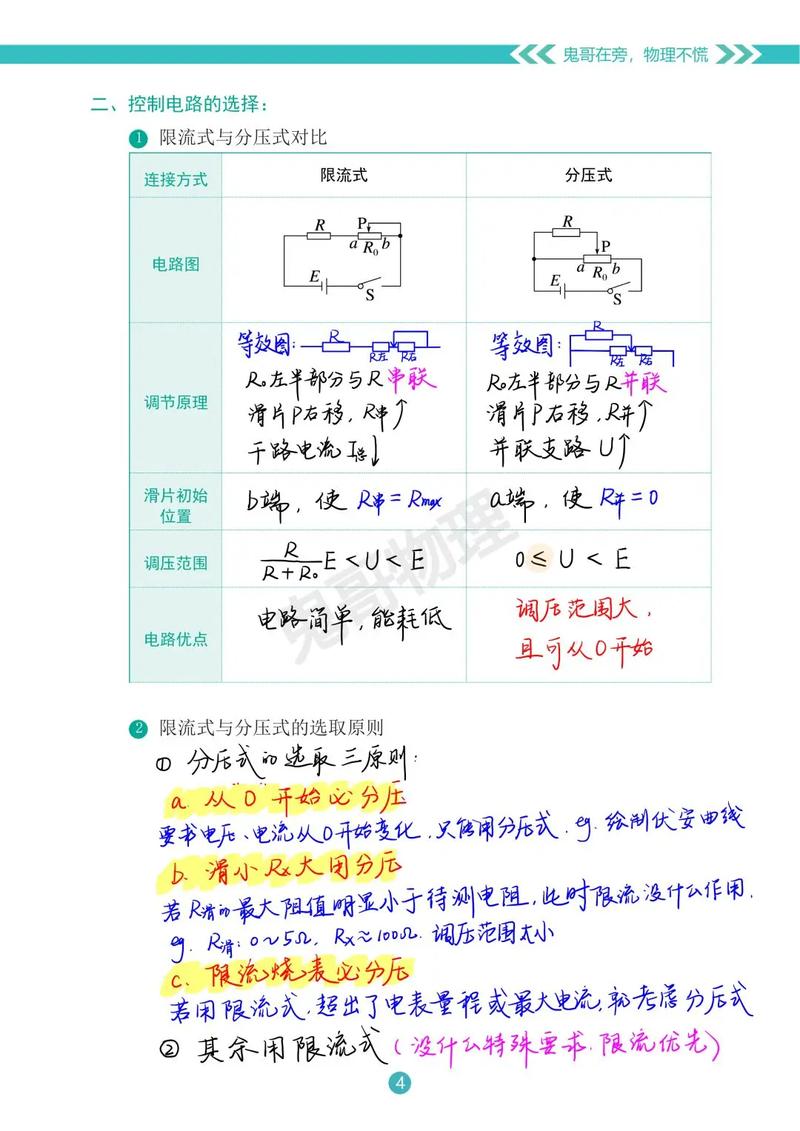 鬼哥在旁，物理不慌
二、控制电路的选择：
1 限流式与分压式对比
连接方式 限流式 分压式
电路图
R P a R₀ b E S
R P a R₀ b E S
调节原理
等效图： R R左 R右
R₀左半部分与R串联
滑片P右移，R串↑
干路电流I总↓
等效图： R R左 R右
R₀左半部分与R并联
滑片P右移，R并↑
并联支路U↑
滑片初始
位置
b端，使 R串=Rmax
a端，使 R并=0
调压范围
R/(R+R₀) E<U<E
0≤U<E
电路优点
电路简单，能耗低
调压范围大，
且可从0开始
鬼哥物理
2 限流式与分压式的选取原则
① 分压式的选取三原则：
a. 从0开始必分压
要求电压、电流从0开始变化，只能用分压式. eg. 绘制伏安曲线
b. 滑小Rx大用分压
若R滑的最大阻值明显小于待测电阻，此时限流没什么作用.
eg. R滑：0~5Ω，Rx≈100Ω. 调压范围太小
c. 限流烧表必分压
若用限流式，超出了电表量程或最大电流，就考虑分压式
② 其余用限流式（没什么特殊要求，限流优先）
4